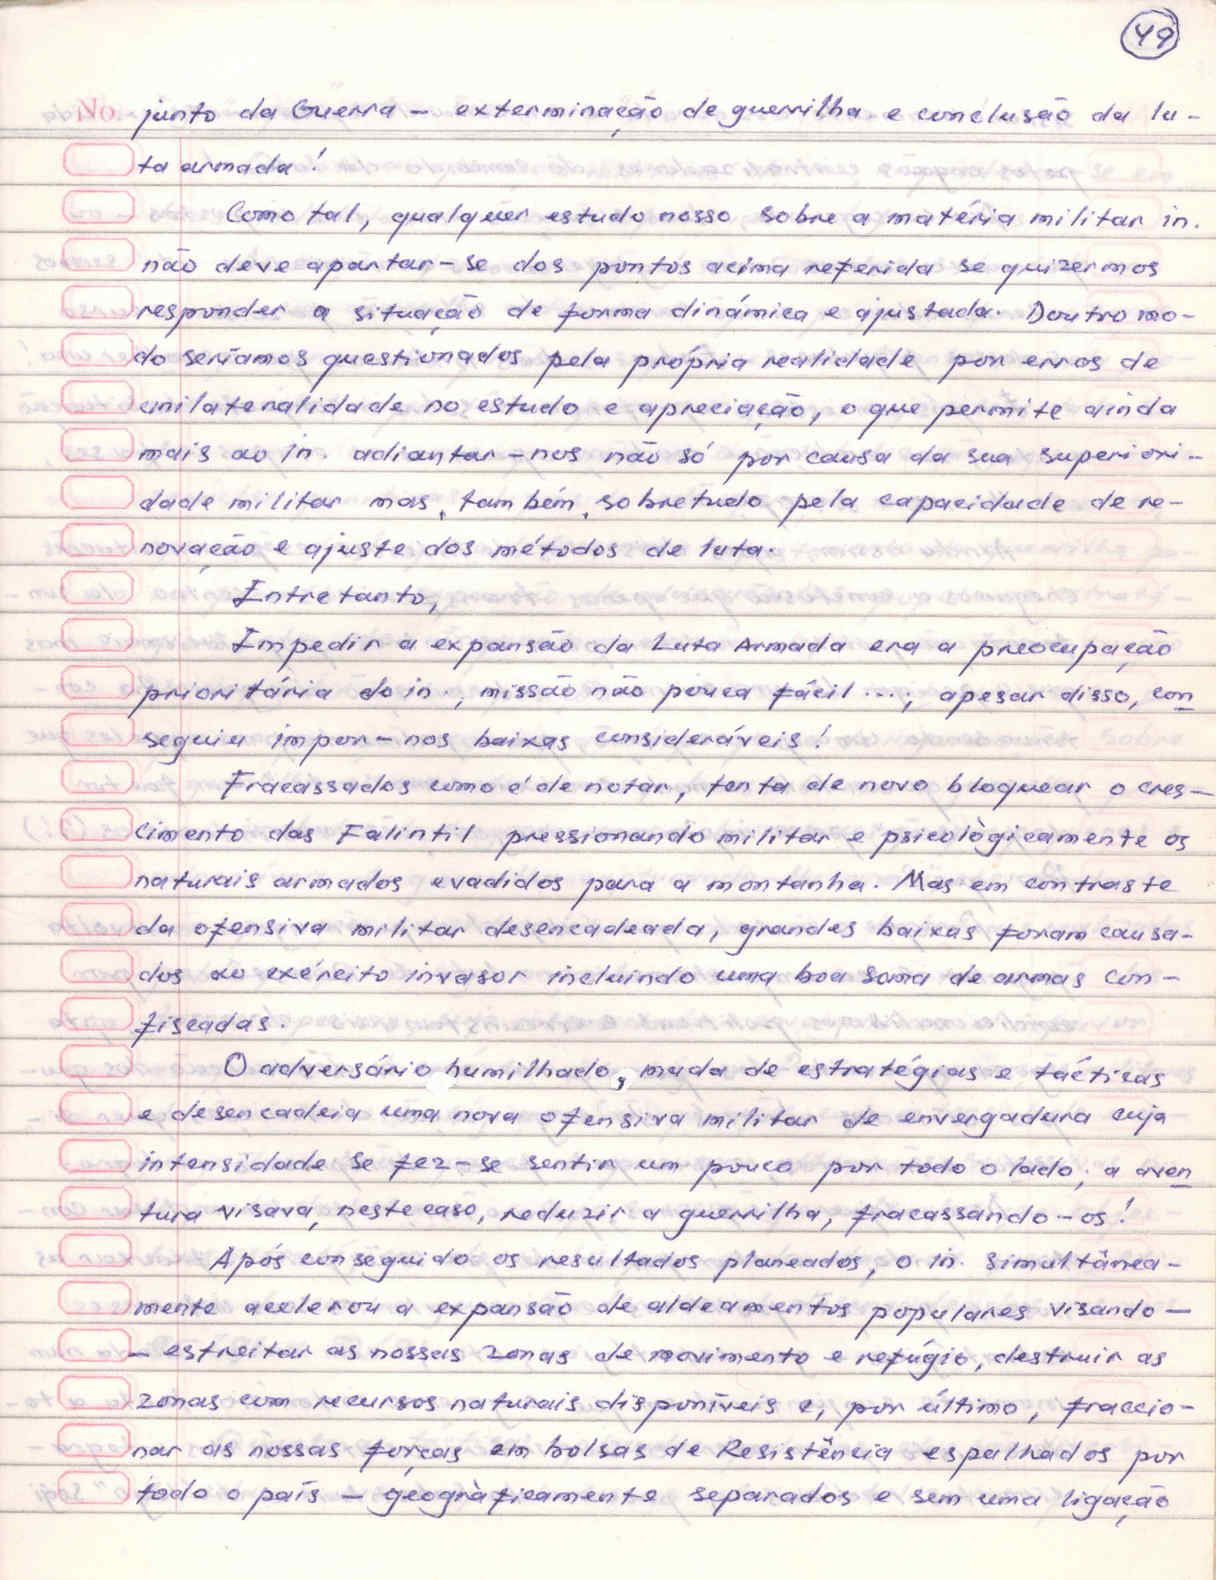 49
junto da Guerra - exterminação de guerrilha e conclusão da lu-
ta armada!
Como tal, qualquer estudo nosso sobre a matéria militar in.
não deve apartar-se dos pontos acima referida se quizermos
responder a situação de forma dinâmica e ajustada. Doutro mo-
do seríamos questionados pela própria realidade por erros de
unilateralidade no estudo e apreciação, o que permite ainda
mais ao in. adiantar-nos não só por causa da sua superiori-
dade militar mas, também, sobretudo pela capacidade de re-
novação e ajuste dos métodos de luta.
Entretanto,
Impedir a expansão da Luta Armada era a preocupação
prioritária do in., missão não pouca fácil ...; apesar disso, con
seguiu impor-nos baixas consideráveis!
Fracassados como é de notar, tenta de novo bloquear o cres-
cimento das Falintil pressionando militar e psicològicamente os
naturais armados evadidos para a montanha. Mas em contraste
da ofensiva militar desencadeada, grandes baixas foram causa-
dos ao exército invasor incluindo uma boa soma de armas con-
fiscadas.
O adversário humilhado, muda de estratégias e tácticas
e desencadeia uma nova ofensiva militar de envergadura cuja
intensidade se fez-se sentir um pouco por todo o lado; a aven
tura visava, neste caso, reduzir a guerrilha, fracassando-os!
Após conseguido os resultados planeados, o in. simultânea-
mente acelerou a expansão de aldeamentos populares visando-
- estreitar as nossas zonas de movimento e refúgio, destruir as
zonas com recursos naturais disponíveis e, por último, fraccio-
nar as nossas forças em bolsas de Resistência espalhados por
todo o país - geogràficamente separados e sem uma ligação